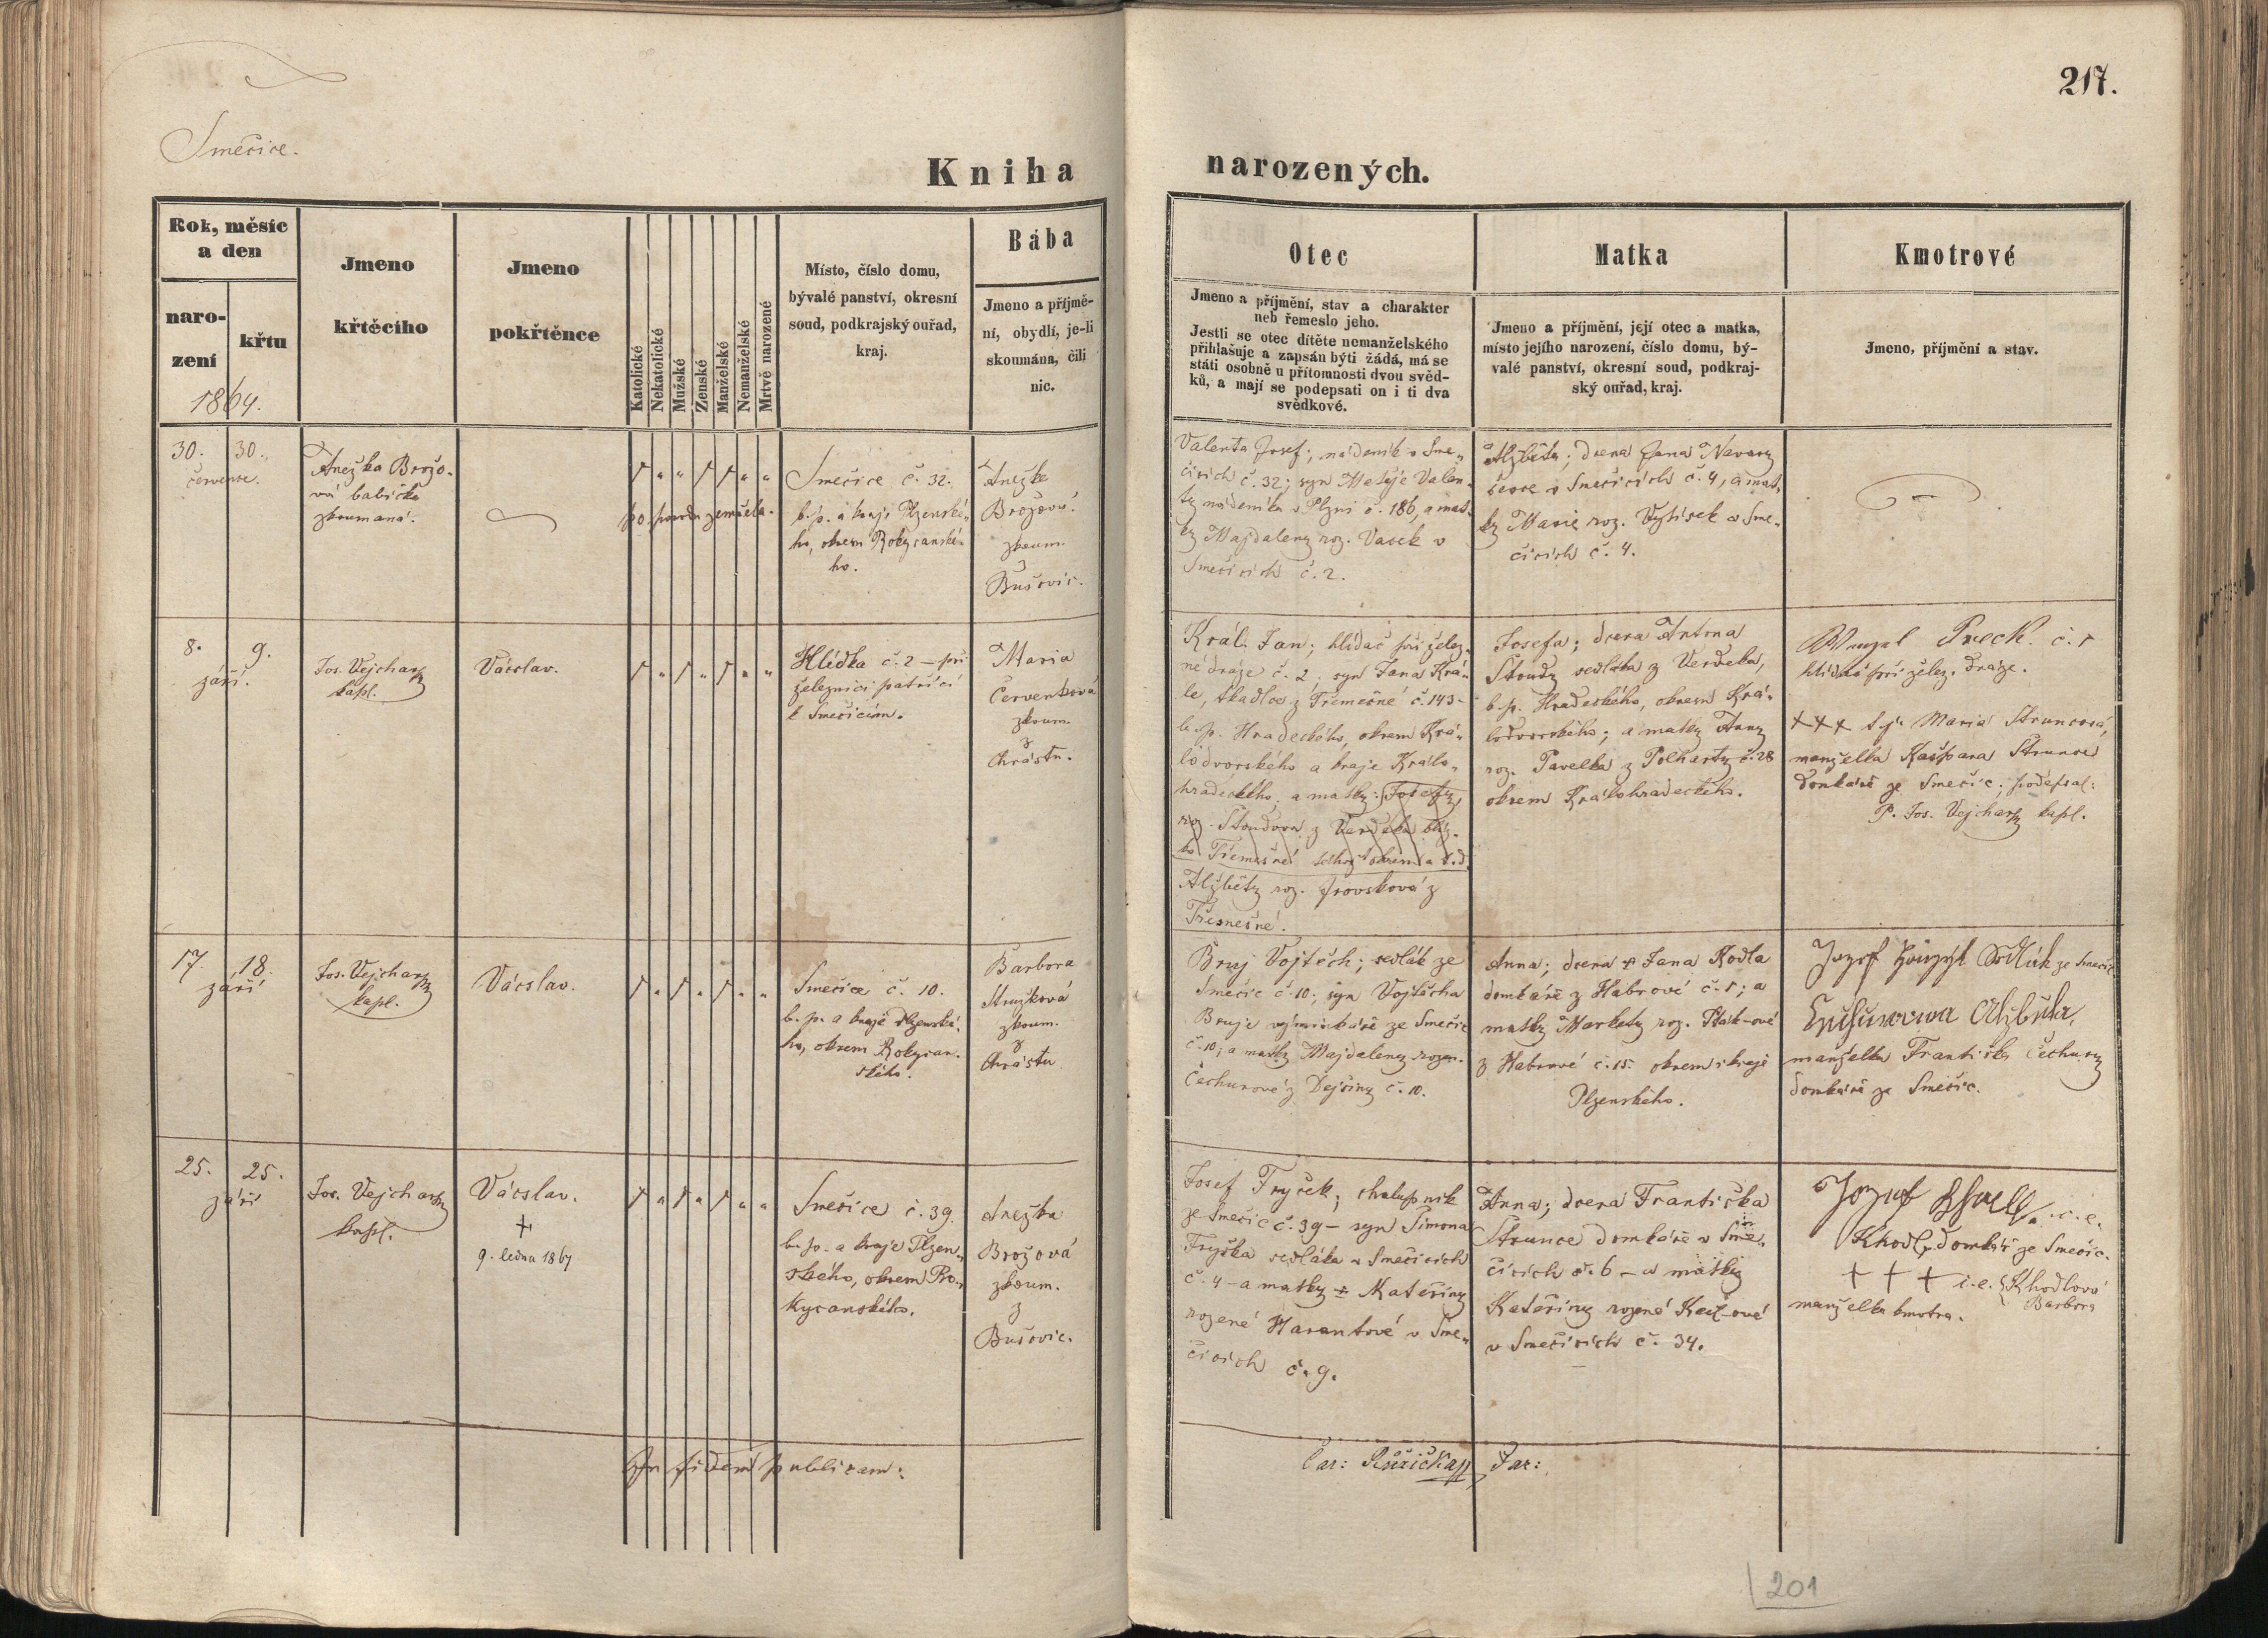 217.
Smečice.
Kniha narozených.
Rok, měsíc
a den
naro-
zení
křtu
1864.
Jmeno
křtěcího
Jmeno
pokřtěnce
Katolické
Nekatolické
Mužské
Ženské
Manželské
Nemanželské
Mrtvě narozené
Místo, číslo domu,
bývalé panství, okresní
soud, podkrajský ouřad,
kraj.
Bába
Jmeno a příjmě-
ní, obydlí, je-li
skoumána, čili
nic.
Otec
Jmeno a příjmění, stav a charakter
neb řemeslo jeho.
Jestli se otec dítěte nemanželského
přihlašuje a zapsán býti žádá, má se
státi osobně u přítomnosti dvou svěd-
ků, a mají se podepsati on i ti dva
svědkové.
Matka
Jmeno a příjmění, její otec a matka,
místo jejího narození, číslo domu, bý-
valé panství, okresní soud, podkraj-
ský ouřad, kraj.
Kmotrové
Jmeno, příjmění a stav.
30. 30.
července.
Anežka Brožo-
vá babička
zkoumaná.
po porodu zemřela.
Smečice č. 32.
b. p. a kraje Plzenské-
ho, okresu Rokycanské-
ho.
Anežka
Brožová
zkoum.
z
Bušovic.
Valenta Josef; nádeník v Sme-
čicích č. 32; syn Matěje Valen-
ty nádeníka v Plzni č. 186, a mat-
ky Majdaleny roz. Vasek v
Smečicích č. 2.
Alžběta; dcera Jana Navary
ševce v Smečicích č. 4, a mat-
ky Marie roz. Vytisek v Sme-
čicích č. 4.
8. 9.
září.
Jos. Vejchar
kapl.
Vácslav.
Hlídka č. 2 – při
železnici patřící
k Smečicům.
Maria
Červenková
zkoum.
z
Chrástu.
Král Jan; hlídač při želez-
né dráze č. 2. syn Jana Krá-
le, tkadlce z Třemešné č. 143-
b. p. Hradeckého, okresu Krá-
lodvorského a kraje Králo-
hradeckého; a matky: Josefy
roz. Stoudova z Verdeka blíz-
ko Třemešné téhož okresu a t.d.
Alžběty roz. Jrovsková z
Třemešné.
Josefa; dcera Antona
Stoudy sedláka z Verdeka,
b. p. Hradeckého, okresu Krá-
lodvorského; a matky Anny
roz. Pavelka z Polharty č. 28
okresu Králohradeckého.
č. 1
hlídač při želez. dráze.
+++ t.j. Maria Struncová,
manželka Kašpara Strunce
domkáře ze Smečic; podepsal:
P. Jos. Vejchar kapl.
17. 18.
září
Jos. Vejchar
kapl.
Vácslav.
Smečice č. 10.
b. p. a kraje Plzenské-
ho, okresu Rokycan-
ského.
Barbora
Stružková
zkoum.
z
Chrástu
Bruj Vojtěch; sedlák ze
Smečic č. 10., syn Vojtěcha
Bruje výminkáře ze Smečic
č. 10; a matky Majdaleny rozen.
Čechurové z Dejšiny č. 10.
Anna; dcera + Jana Kodla
domkáře z Habrové č. 1; a
matky Markety roz. Pták-ové
z Habrové č. 15. okresu i kraje
Plzenského.
Sedlák ze Smečic
Alžběta,
manželka Františka Čechury
domkáře ze Smečic.
25. 25.
září
Jos. Vejchar
kapl.
Vácslav.
+
9. ledna 1867
Smečice č. 39.
b. p. a kraje Plzen-
ského, okresu Ro-
kycanského.
Anežka
Brožová
zkoum.
z
Bušovic.
Josef Fryček; chalupník
ze Smečic č. 39 – syn Šimona
Fryčka sedláka v Smečicích
č. 4 – a matky + Kateřiny
rozené Harantové v Sme-
čicích č. 9.
Anna; dcera Františka
Strunce domkáře v Sme-
čicích č. 6 – a matky
Kateřiny rozené Keil-ové
v Smečicích č. 34.
i. e.
Khodl, domkář ze Smečic.
+ + + i. e. Khodlová
Barbora
manželka kmotra.
In fidem publicam:
Car: Růžička Far:
201